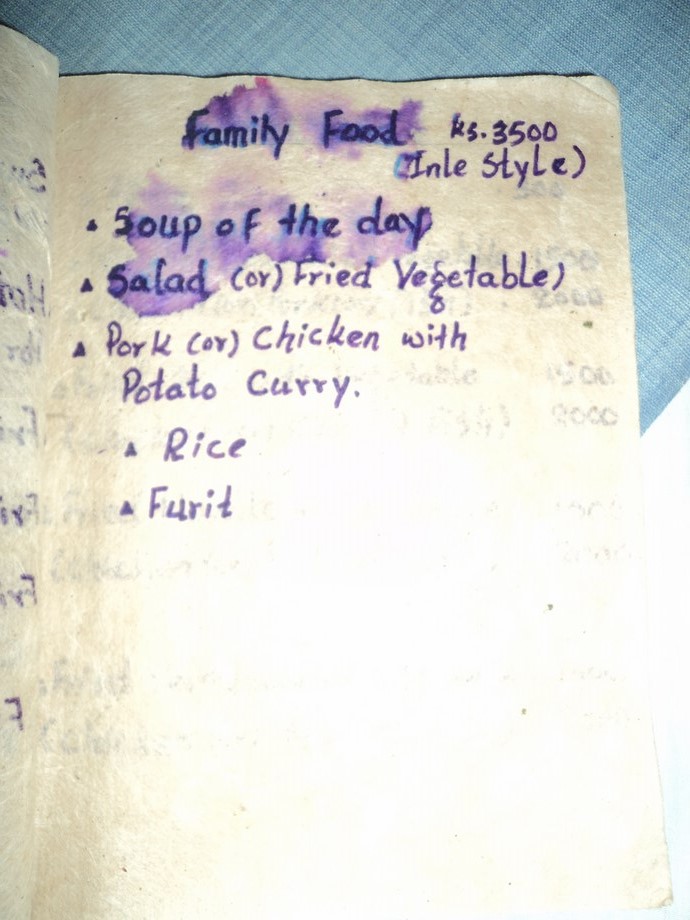 Family Food ks. 3500
(Inle Style)
▲ Soup of the day
▲ Salad (or) Fried Vegetable)
▲ Pork (or) Chicken with
Potato Curry.
▲ Rice
▲ Furit